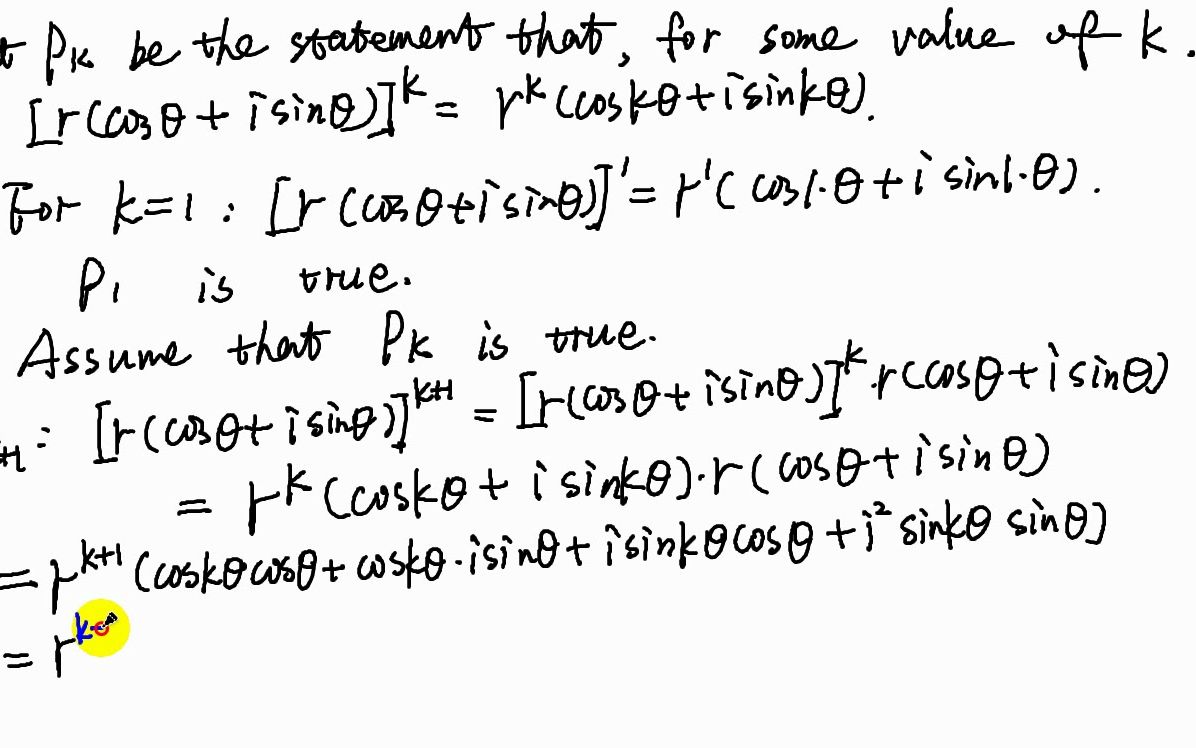 t Pk be the statement that, for some value of k.
[r(cosθ + i sinθ)]^k = r^k (coskθ + i sinkθ).
For k=1 : [r (cosθ + i sinθ)]^1 = r^1 ( cos1·θ + i sin1·θ).
P1 is true.
Assume that Pk is true.
+1: [r(cosθ + i sinθ)]^k+1 = [r(cosθ + i sinθ)]^k · r(cosθ + i sinθ)
= r^k (coskθ + i sinkθ)·r ( cosθ + i sinθ)
= r^k+1 (coskθ cosθ + coskθ · i sinθ + i sinkθ cosθ + i² sinkθ sinθ)
= r^k